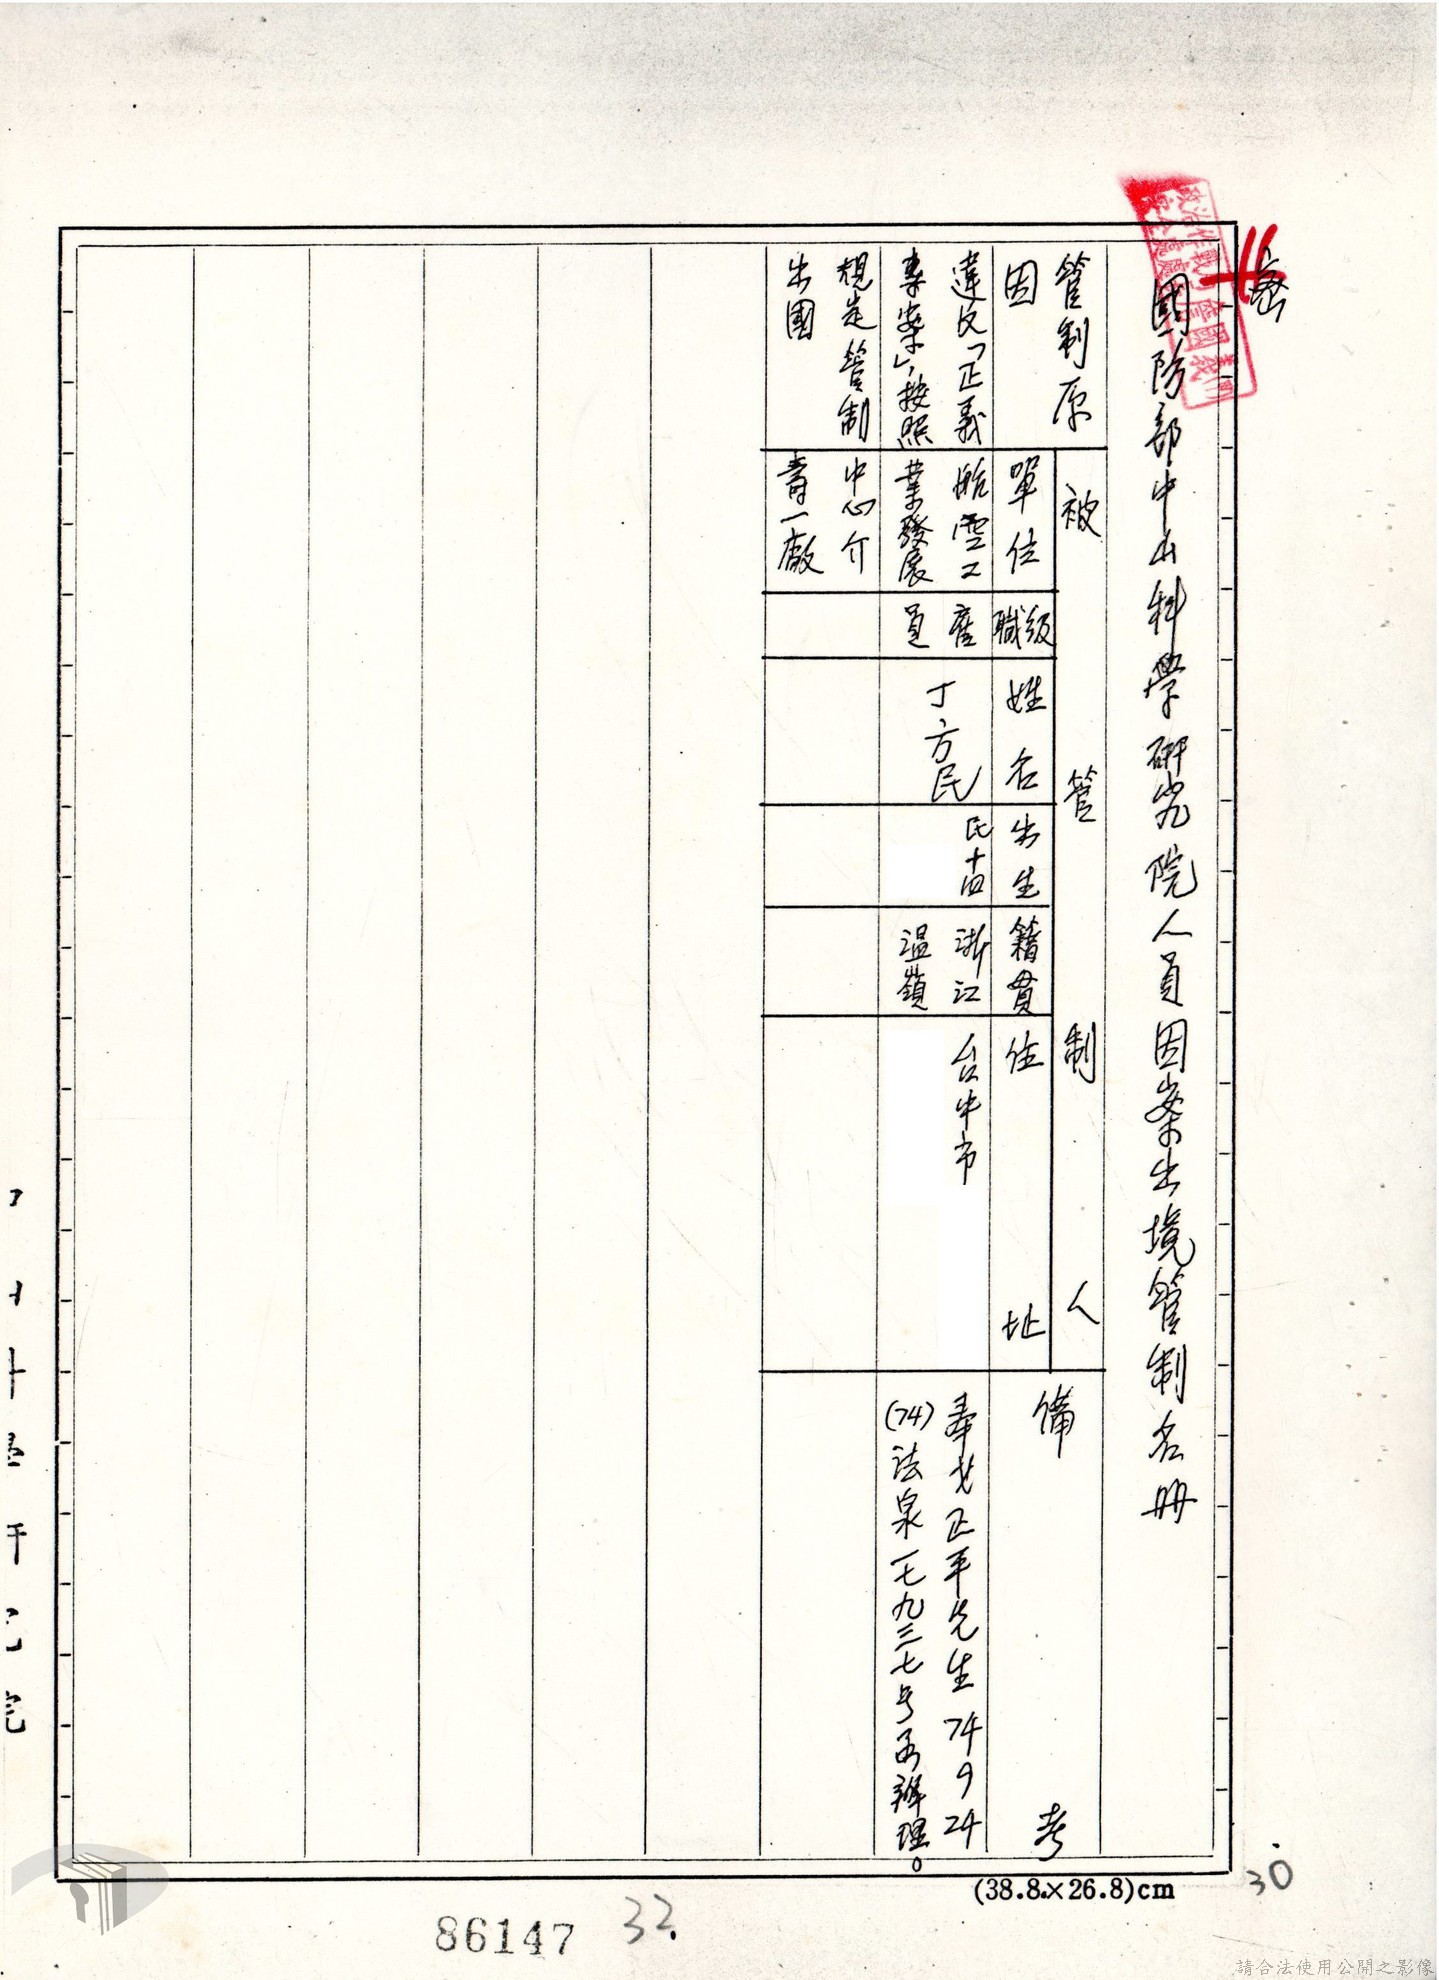 密
國防部中山科學研究院人員因案出境管制名冊
管制原
因
被管制人
單位
級職
姓名
出生
籍貫
住址
備考
違反「正義
專案」,按照
規定管制
出國
航空工
業發展
中心介
壽一廠
雇
員
丁方民
民十四
浙江
溫嶺
台中市
奉戈正平先生74 9 24
(74)法泉一七九三七号函辦理。
(38.8×26.8)cm
30
86147
32
請合法使用公開之影像